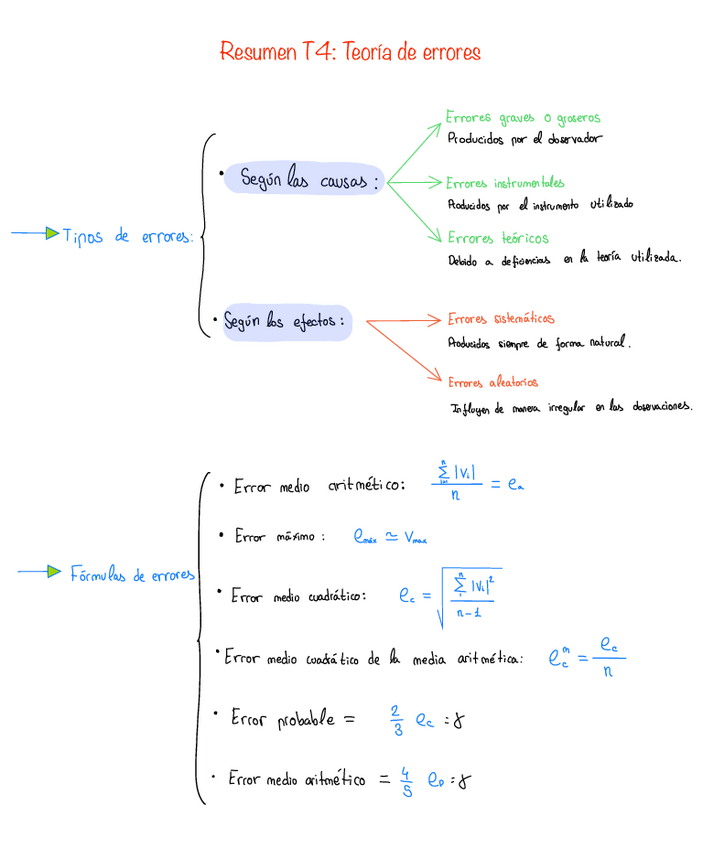 Resumen T4: Teoría de errores
Tipos de errores:
• Según las causas:
Errores graves o groseros
Producidos por el observador
Errores instrumentales
Producidos por el instrumento utilizado
Errores teóricos
Debido a deficiencias en la teoría utilizada.
• Según los efectos:
Errores sistemáticos
Producidos siempre de forma natural.
Errores aleatorios
Influyen de manera irregular en las observaciones.
Fórmulas de errores
• Error medio aritmético: \frac{\sum_{i=1}^{n} |V_i|}{n} = e_a
• Error máximo: e_{máx} ≃ V_{max}
• Error medio cuadrático: e_c = \sqrt{\frac{\sum_{1}^{n} |V_i|^2}{n-1}}
• Error medio cuadrático de la media aritmética: e_c^m = \frac{e_c}{n}
• Error probable = \frac{2}{3} e_c = γ
• Error medio aritmético = \frac{4}{5} e_p = γ